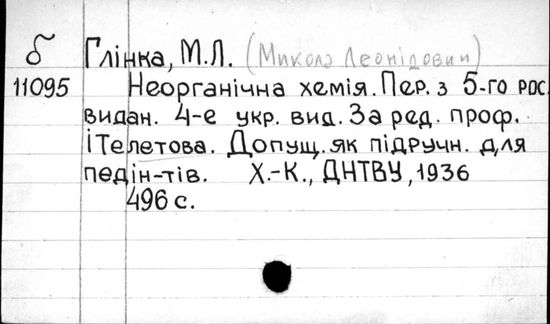 б Глінка, М.Л. (Микола Леонідович)
11095 Неорганічна хемія. Пер. з 5-го рос.
видан. 4-е укр. вид. За ред. проф.
І Телетова. Допущ. як підручн. для
педін-тів. Х.-К., ДНТВУ, 1936
496 с.